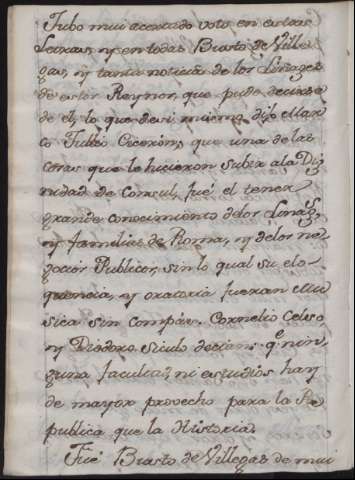 Tubo mui acertado voto en estas
Letras, y en todas Brasto de Ville
gas, y tanta noticia de los Linages
de estos Reynos, que pudo decirse
de el, lo que de si mismo dijo Mar
co Tulio Ciceron, que una de las
cosas que le hicieron subir a la Dig
nidad de Consul, fué el tener
grande conocimiento de los Linags,
y familias de Roma, y de los ne
gocios Publicos, sin lo qual su elo
quencia, y oratoria fueran Mu
sica sin compás. Cornelio Celso
y Diodoro Siculo decian qe nin
guna facultad, ni estudios hay
de mayor provecho para la Re
publica que la Historia.
Fué Brasto de Villegas de mui